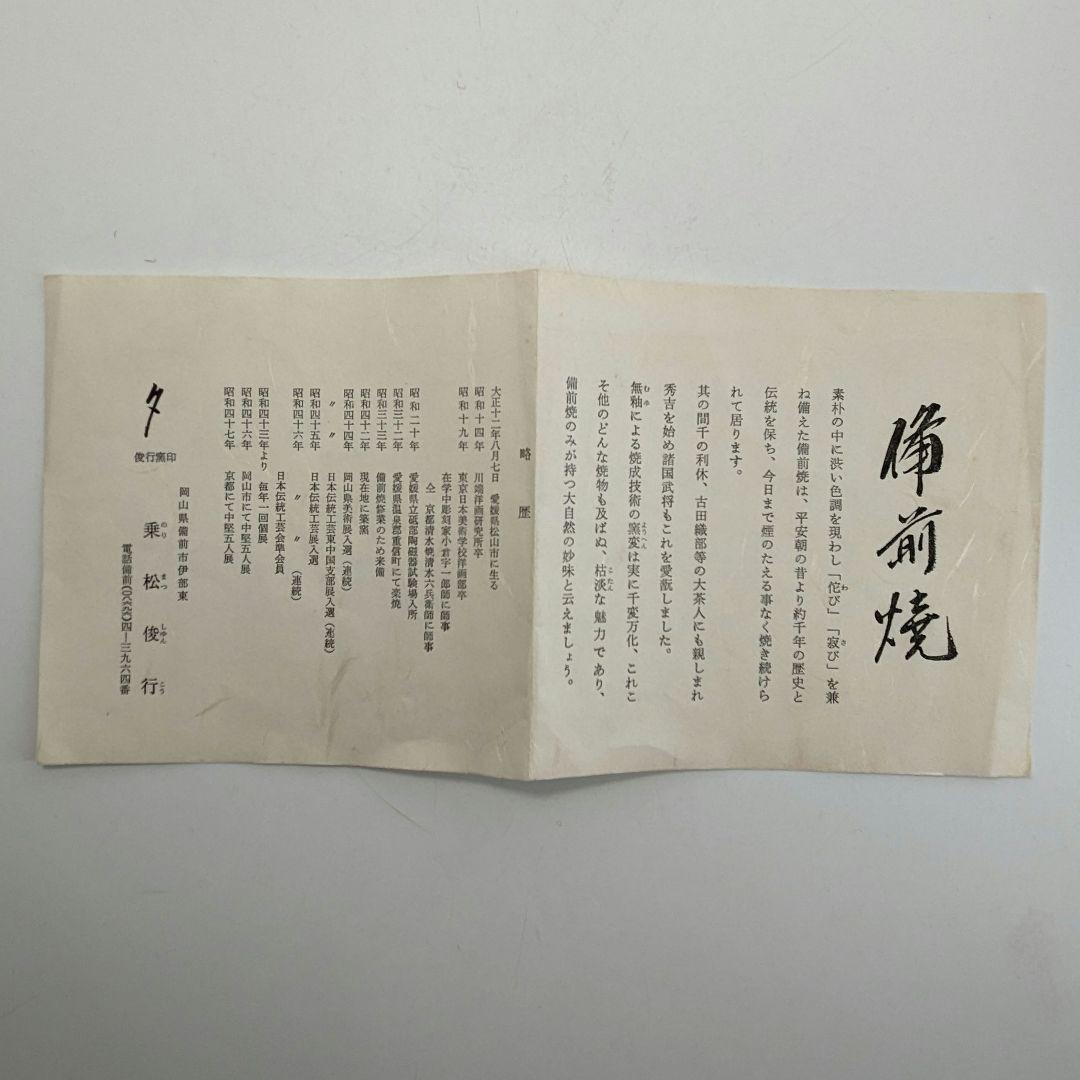 備前焼
素朴の中に渋い色調を現わし「侘び」「寂び」を兼
ね備えた備前焼は、平安朝の昔より約千年の歴史と
伝統を保ち、今日まで煙のたえる事なく焼き続けら
れて居ります。
其の間千の利休、古田織部等の大茶人にも親しまれ
秀吉を始め諸国武将もこれを愛翫しました。
無釉による焼成技術の窯変は実に千変万化、これこ
そ他のどんな焼物も及ばぬ、枯淡な魅力であり、
備前焼のみが持つ大自然の妙味と云えましょう。
略歴
大正十二年八月七日 愛媛県松山市に生る
昭和十四年 川端洋画研究所卒
昭和十九年 東京日本美術学校洋画部卒
在学中彫刻家小倉宇一郎師に師事
仝 京都清水焼清水六兵衛師に師事
昭和二十年 愛媛県立砥部陶磁器試験場入所
昭和三十二年 愛媛県温泉郡重信町にて楽焼
昭和三十三年 備前焼修業のため来備
昭和四十二年 現在地に築窯
昭和四十四年 岡山県美術展入選(連続)
〃 〃 日本伝統工芸東中国支部展入選(連続)
昭和四十五年 日本伝統工芸展入選
昭和四十六年 〃 〃 (連続)
日本伝統工芸会準会員
昭和四十三年より 毎年一回個展
昭和四十六年 岡山市にて中堅五人展
昭和四十七年 京都にて中堅五人展
岡山県備前市伊部東
俊行窯印
乗松俊行
のりまつしゅんこう
電話備前(〇八六九〇)四―三九六四番